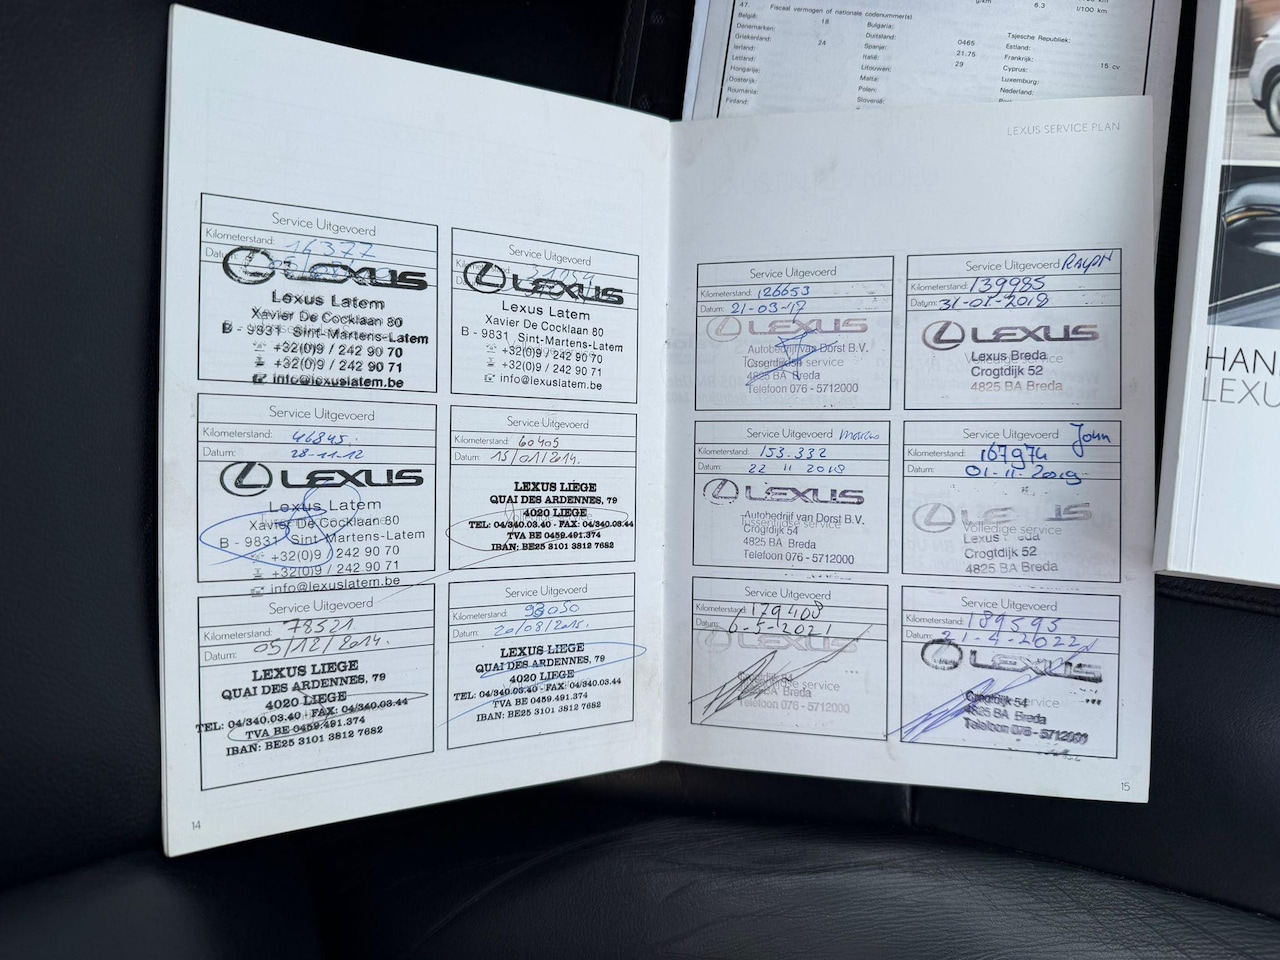 47. Fiscaal vermogen of nationale codenummer(s)
g/km 6.3 l/100 km
België: 18 Bulgaria:
Denemarken: Duitsland: 0465 Tsjechische Republiek:
Griekenland: 24 Spanje: 21.75 Estland:
Ierland: Italië: 29 Frankrijk: 15 cv
Letland: Litouwen: Cyprus:
Hongarije: Malta: Luxemburg:
Oostenrijk: Polen: Nederland:
Roumania: Slovenië:
Finland:
LEXUS SERVICE PLAN
Service Uitgevoerd
Kilometerstand: 14377
Datum:
LEXUS
Lexus Latem
Xavier De Cocklaan 80
B - 9831 Sint-Martens-Latem
+32(0)9 / 242 90 70
+32(0)9 / 242 90 71
info@lexuslatem.be
Service Uitgevoerd
LEXUS
Lexus Latem
Xavier De Cocklaan 80
B - 9831 Sint-Martens-Latem
+32(0)9 / 242 90 70
+32(0)9 / 242 90 71
info@lexuslatem.be
Service Uitgevoerd
Kilometerstand: 46845.
Datum: 28-11-12
LEXUS
Lexus Latem
Xavier De Cocklaan 80
B - 9831 Sint-Martens-Latem
+32(0)9 / 242 90 70
+32(0)9 / 242 90 71
info@lexuslatem.be
Service Uitgevoerd
Kilometerstand: 60405
Datum: 15/01/2014.
LEXUS LIEGE
QUAI DES ARDENNES, 79
4020 LIEGE
TEL: 04/340.03.40 - FAX: 04/340.03.44
TVA BE 0459.491.374
IBAN: BE25 3101 3812 7682
Service Uitgevoerd
Kilometerstand: 78521
Datum: 05/12/2014.
LEXUS LIEGE
QUAI DES ARDENNES, 79
4020 LIEGE
TEL: 04/340.03.40 - FAX: 04/340.03.44
TVA BE 0459.491.374
IBAN: BE25 3101 3812 7682
Service Uitgevoerd
Kilometerstand: 98050
Datum: 20/08/2015.
LEXUS LIEGE
QUAI DES ARDENNES, 79
4020 LIEGE
TEL: 04/340.03.40 - FAX: 04/340.03.44
TVA BE 0459.491.374
IBAN: BE25 3101 3812 7682
14
Service Uitgevoerd
Kilometerstand: 126653
Datum: 21-03-17
LEXUS
Autobedrijf van Dorst B.V.
Crogtdijk 54
4825 BA Breda
Telefoon 076 - 5712000
Service Uitgevoerd Ralph
Kilometerstand: 139985
Datum: 31-01-2018
LEXUS
Lexus Breda
Volledige service
Crogtdijk 52
4825 BA Breda
Service Uitgevoerd Marco
Kilometerstand: 153.332
Datum: 22 11 2018
LEXUS
Autobedrijf van Dorst B.V.
Tussentijdse service
Crogtdijk 54
4825 BA Breda
Telefoon 076 - 5712000
Service Uitgevoerd John
Kilometerstand: 167974
Datum: 01-11-2019
Volledige service
Lexus Breda
Crogtdijk 52
4825 BA Breda
Service Uitgevoerd
Kilometerstand: 179408
Datum: 6-5-2021
LEXUS
Crogtdijk 54
4825 BA Breda
Telefoon 076 - 5712000
Service Uitgevoerd
Kilometerstand: 189593
Datum: 21-4-2022
LEXUS
Crogtdijk 54
4825 BA Breda
Telefoon 076 - 5712000
15
HAN
LEXU